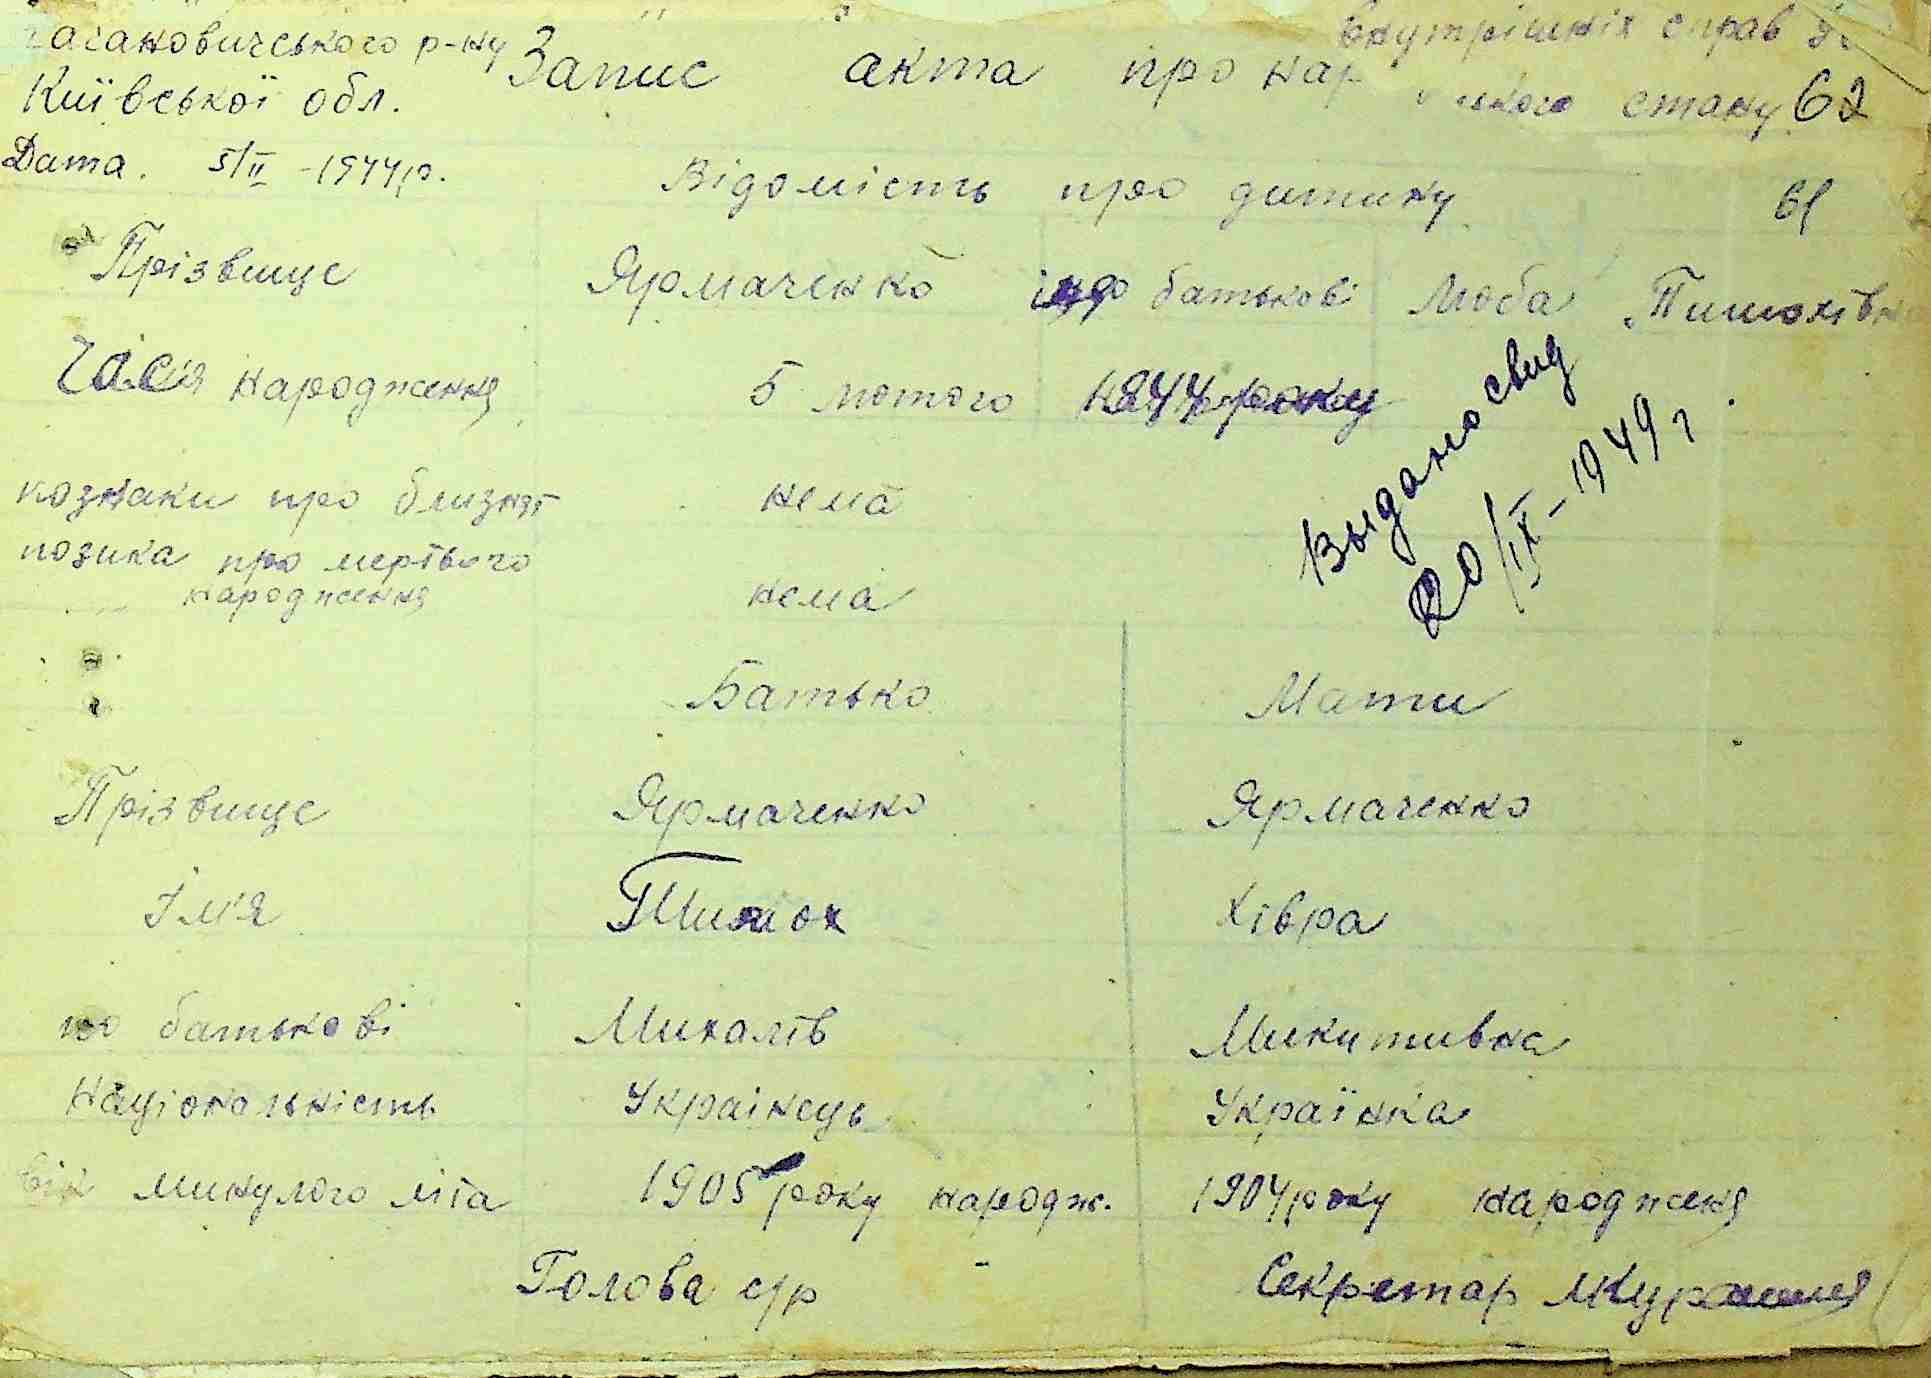 Кагановичського р-ну
Київської обл.
Запис акта про нар
внутрішніх справ
стану 62
Дата. 5/II -1944р.
Відомість про дитину 61
Прізвище Ярмаченко по батькові Люба Тимохівна
Час народження 5 лютого 1944 року
Видано свид
20/IX-1949 г
познаки про близнят нема
позика про мертвого народження нема
Батько Мати
Прізвище Ярмаченко Ярмаченко
Ім'я Тимох Хівра
по батькові Михалів Микитивна
Національність Українець Українка
вік минулого літа 1905 року народж. 1904 року народженя
Голова с/р Секретар